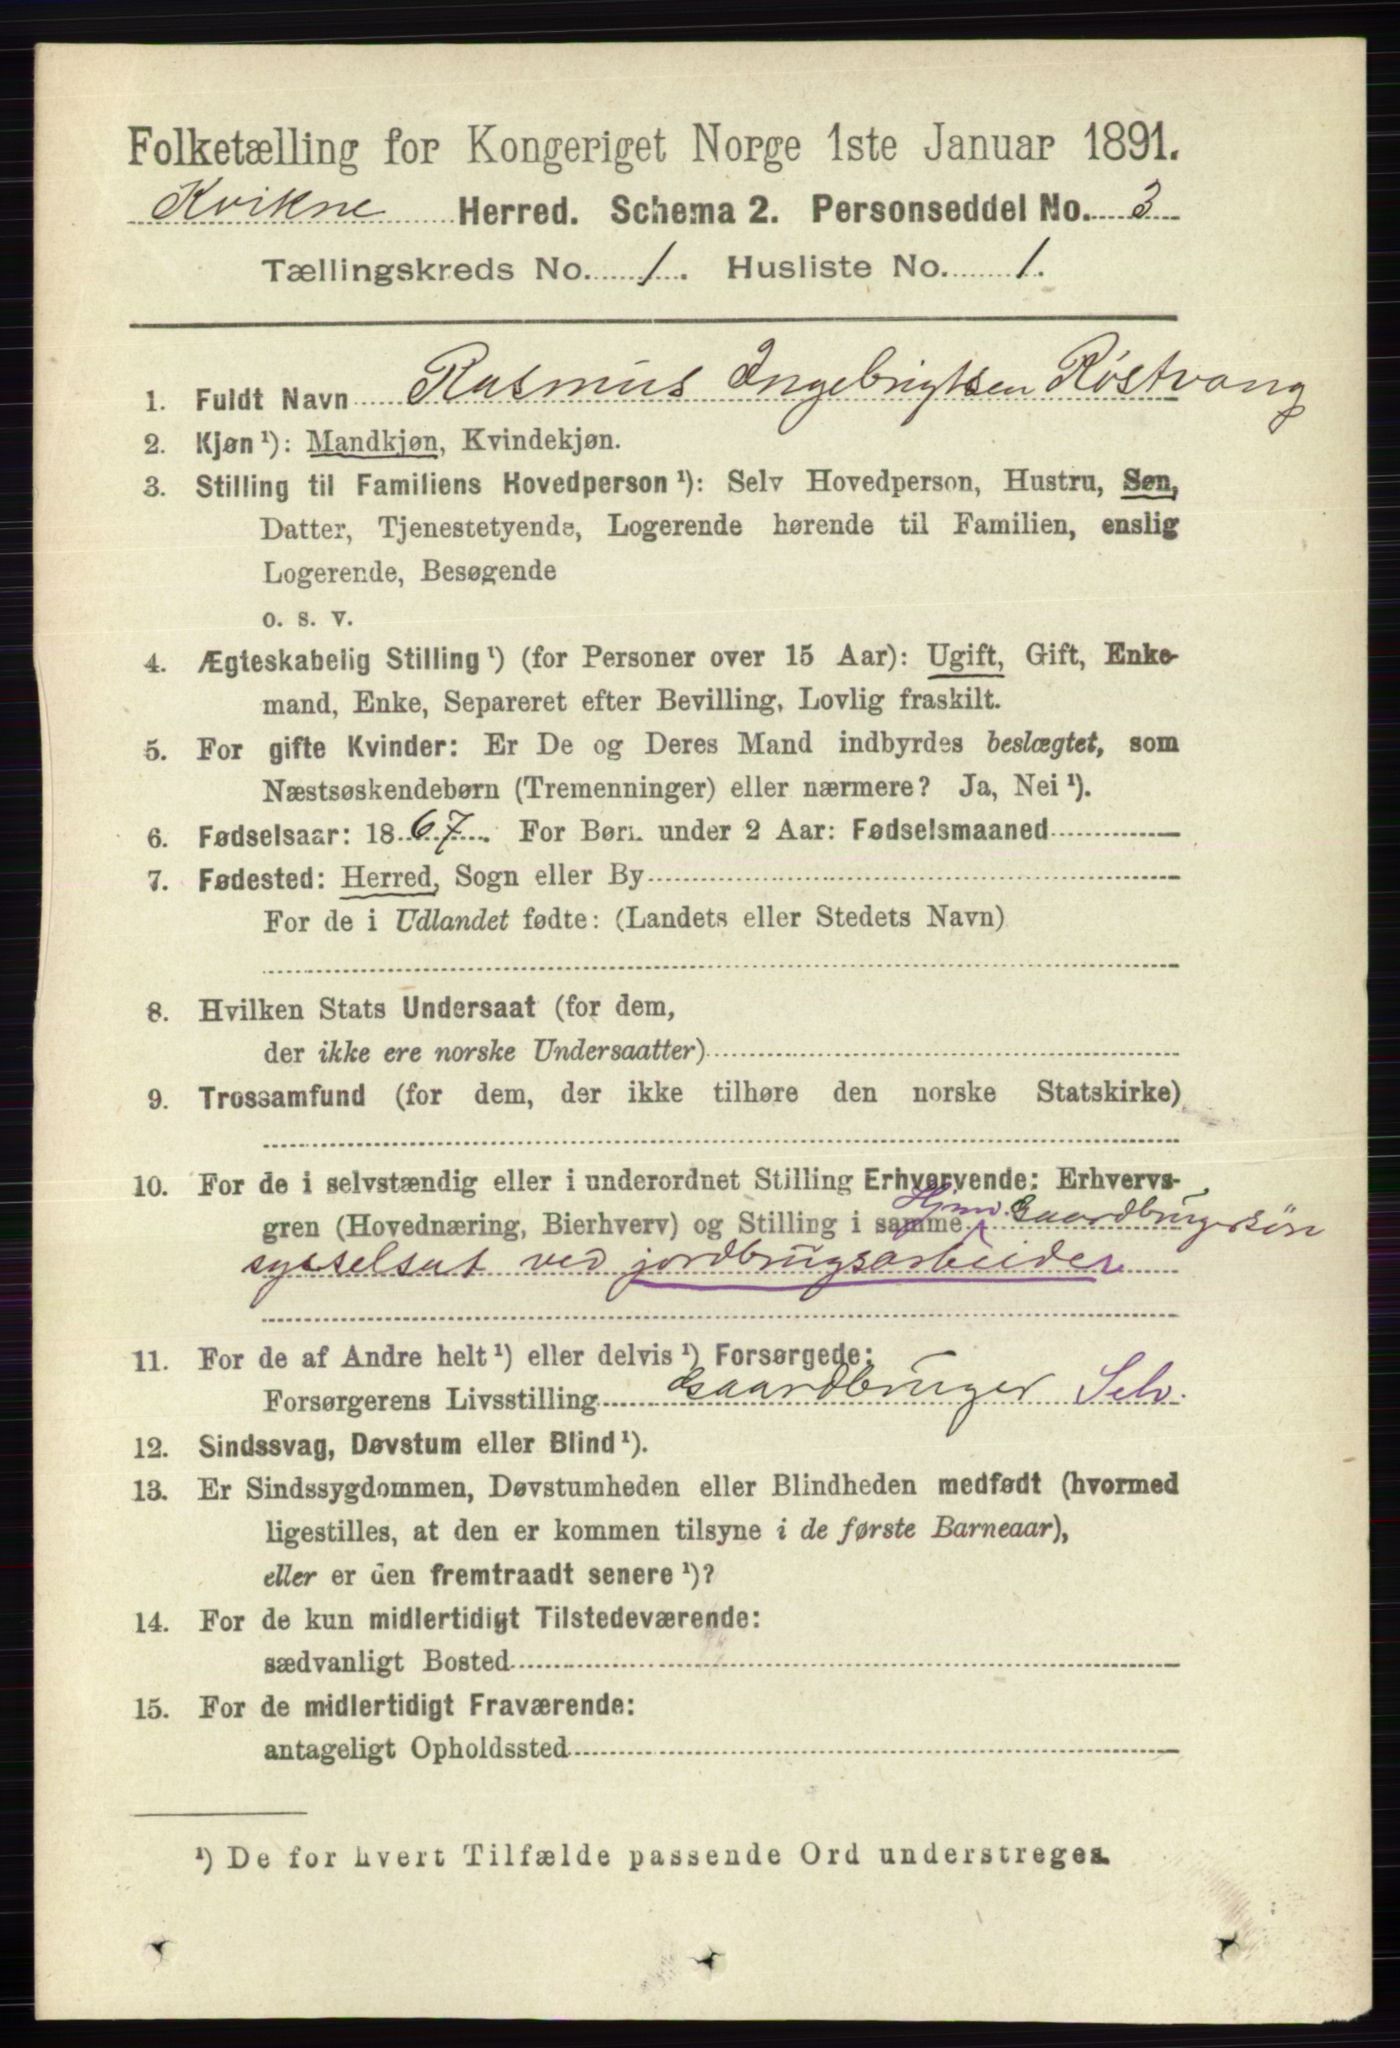 Folketælling for Kongeriget Norge 1ste Januar 1891.
Kvikne Herred. Schema 2. Personseddel No. 3
Tællingskreds No. 1. Husliste No. 1.
1. Fuldt Navn Rasmus Ingebrigtsen Røstvang
2. Kjøn¹): Mandkjøn, Kvindekjøn.
3. Stilling til Familiens Hovedperson¹): Selv Hovedperson, Hustru, Søn,
Datter, Tjenestetyende, Logerende hørende til Familien, enslig
Logerende, Besøgende
o. s. v.
4. Ægteskabelig Stilling¹) (for Personer over 15 Aar): Ugift, Gift, Enke-
mand, Enke, Separeret efter Bevilling, Lovlig fraskilt.
5. For gifte Kvinder: Er De og Deres Mand indbyrdes beslægtet, som
Næstsøskendebørn (Tremenninger) eller nærmere? Ja, Nei¹).
6. Fødselsaar: 1867. For Børn under 2 Aar: Fødselsmaaned
7. Fødested: Herred, Sogn eller By
For de i Udlandet fødte: (Landets eller Stedets Navn)
8. Hvilken Stats Undersaat (for dem,
der ikke ere norske Undersaatter)
9. Trossamfund (for dem, der ikke tilhøre den norske Statskirke)
10. For de i selvstændig eller i underordnet Stilling Erhvervende: Erhvervs-
gren (Hovednæring, Bierhverv) og Stilling i samme Hjmv. Gaardbrugersøn
sysselsat ved jordbrugsarbeider
11. For de af Andre helt¹) eller delvis¹) Forsørgede:
Forsørgerens Livsstilling Gaardbruger Selv.
12. Sindssvag, Døvstum eller Blind¹).
13. Er Sindssygdommen, Døvstumheden eller Blindheden medfødt (hvormed
ligestilles, at den er kommen tilsyne i de første Barneaar),
eller er den fremtraadt senere¹)?
14. For de kun midlertidigt Tilstedeværende:
sædvanligt Bosted
15. For de midlertidigt Fraværende:
antageligt Opholdssted
¹) De for hvert Tilfælde passende Ord understreges.